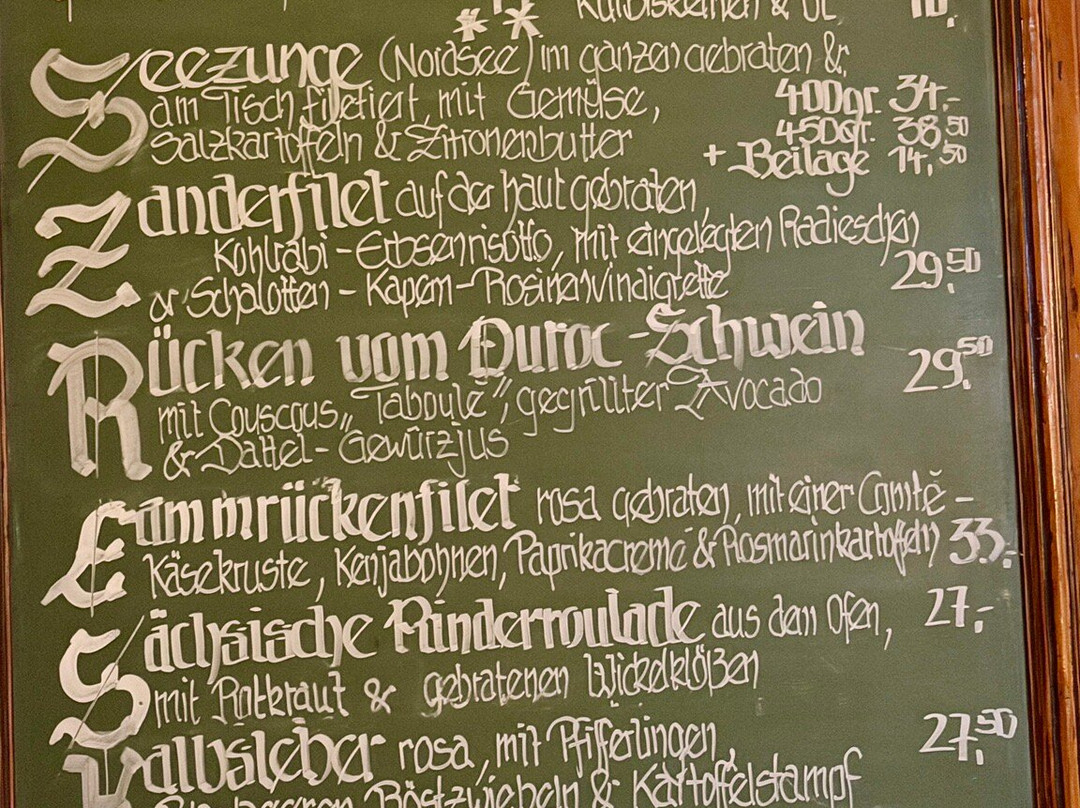 Kürbiskernen & Öl 10.
**
Seezunge (Nordsee) im ganzen gebraten &
am Tisch filetiert, mit Gemüse, 400gr. 34,-
Salzkartoffeln & Zitronenbutter 450gr. 38,50
+ Beilage 14,50
Zanderfilet auf der Haut gebraten,
Kohlrabi-Erbsenrisotto, mit eingelegten Radieschen
& Schalotten-Kapern-Rosinenvinaigrette 29,50
Rücken vom Duroc-Schwein 29,50
mit Couscous „Taboulé“, gegrillter Avocado
& Dattel-Gewürzjus
Lammrückenfilet rosa gebraten, mit einer Comté-
Käsekruste, Kenjabohnen, Paprikacreme & Rosmarinkartoffeln 33,-
Sächsische Rinderroulade aus dem Ofen, 27,-
mit Rotkraut & gebratenen Wickelklößen
Kalbsleber rosa, mit Pfifferlingen, 27,50
Röstzwiebeln & Kartoffelstampf